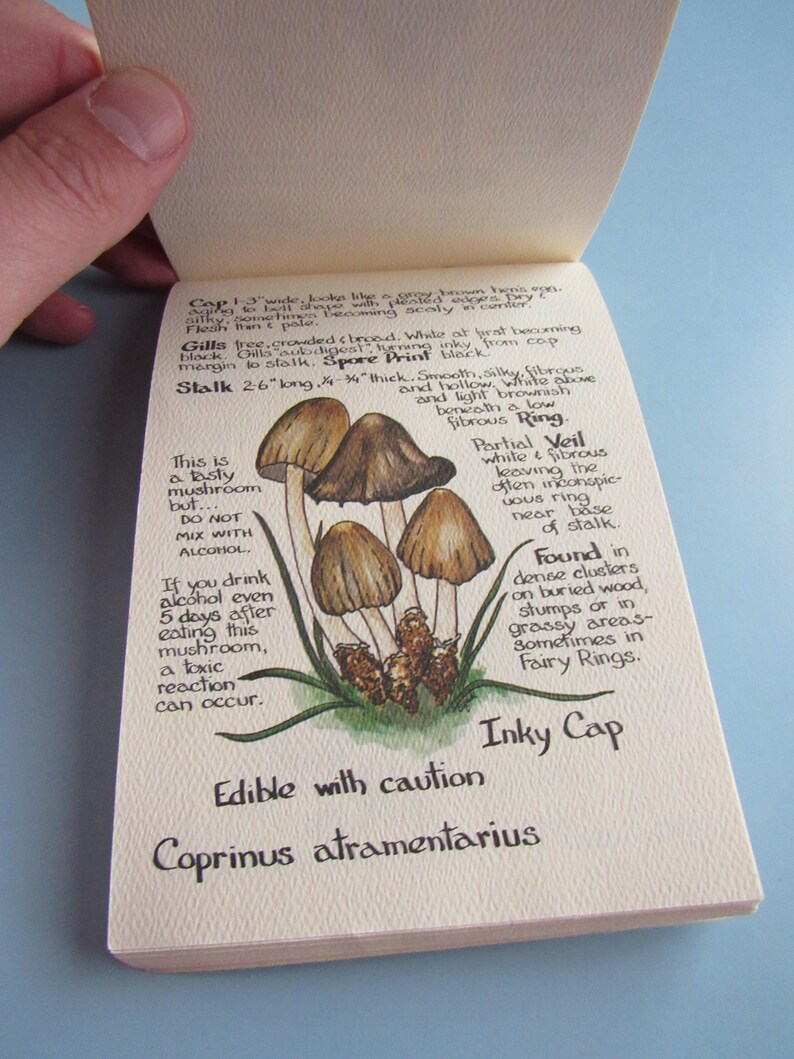 Cap 1-3" wide, looks like a gray-brown hen's egg,
aging to bell shape with pleated edges. Dry &
silky, sometimes becoming scaly in center.
Flesh thin & pale.
Gills free, crowded & broad. White at first becoming
black. Gills "autodigest", turning inky from cap
margin to stalk. Spore Print black.
Stalk 2-6" long, 1/4-3/4" thick. Smooth, silky, fibrous
and hollow. White above
and light brownish
beneath a low
fibrous Ring.
Partial Veil
white & fibrous
leaving the
often inconspic-
uous ring
near base
of stalk.
This is
a tasty
mushroom
but...
DO NOT
MIX WITH
ALCOHOL.
If you drink
alcohol even
5 days after
eating this
mushroom,
a toxic
reaction
can occur.
Found in
dense clusters
on buried wood,
stumps or in
grassy areas-
sometimes in
Fairy Rings.
Inky Cap
Edible with caution
Coprinus atramentarius